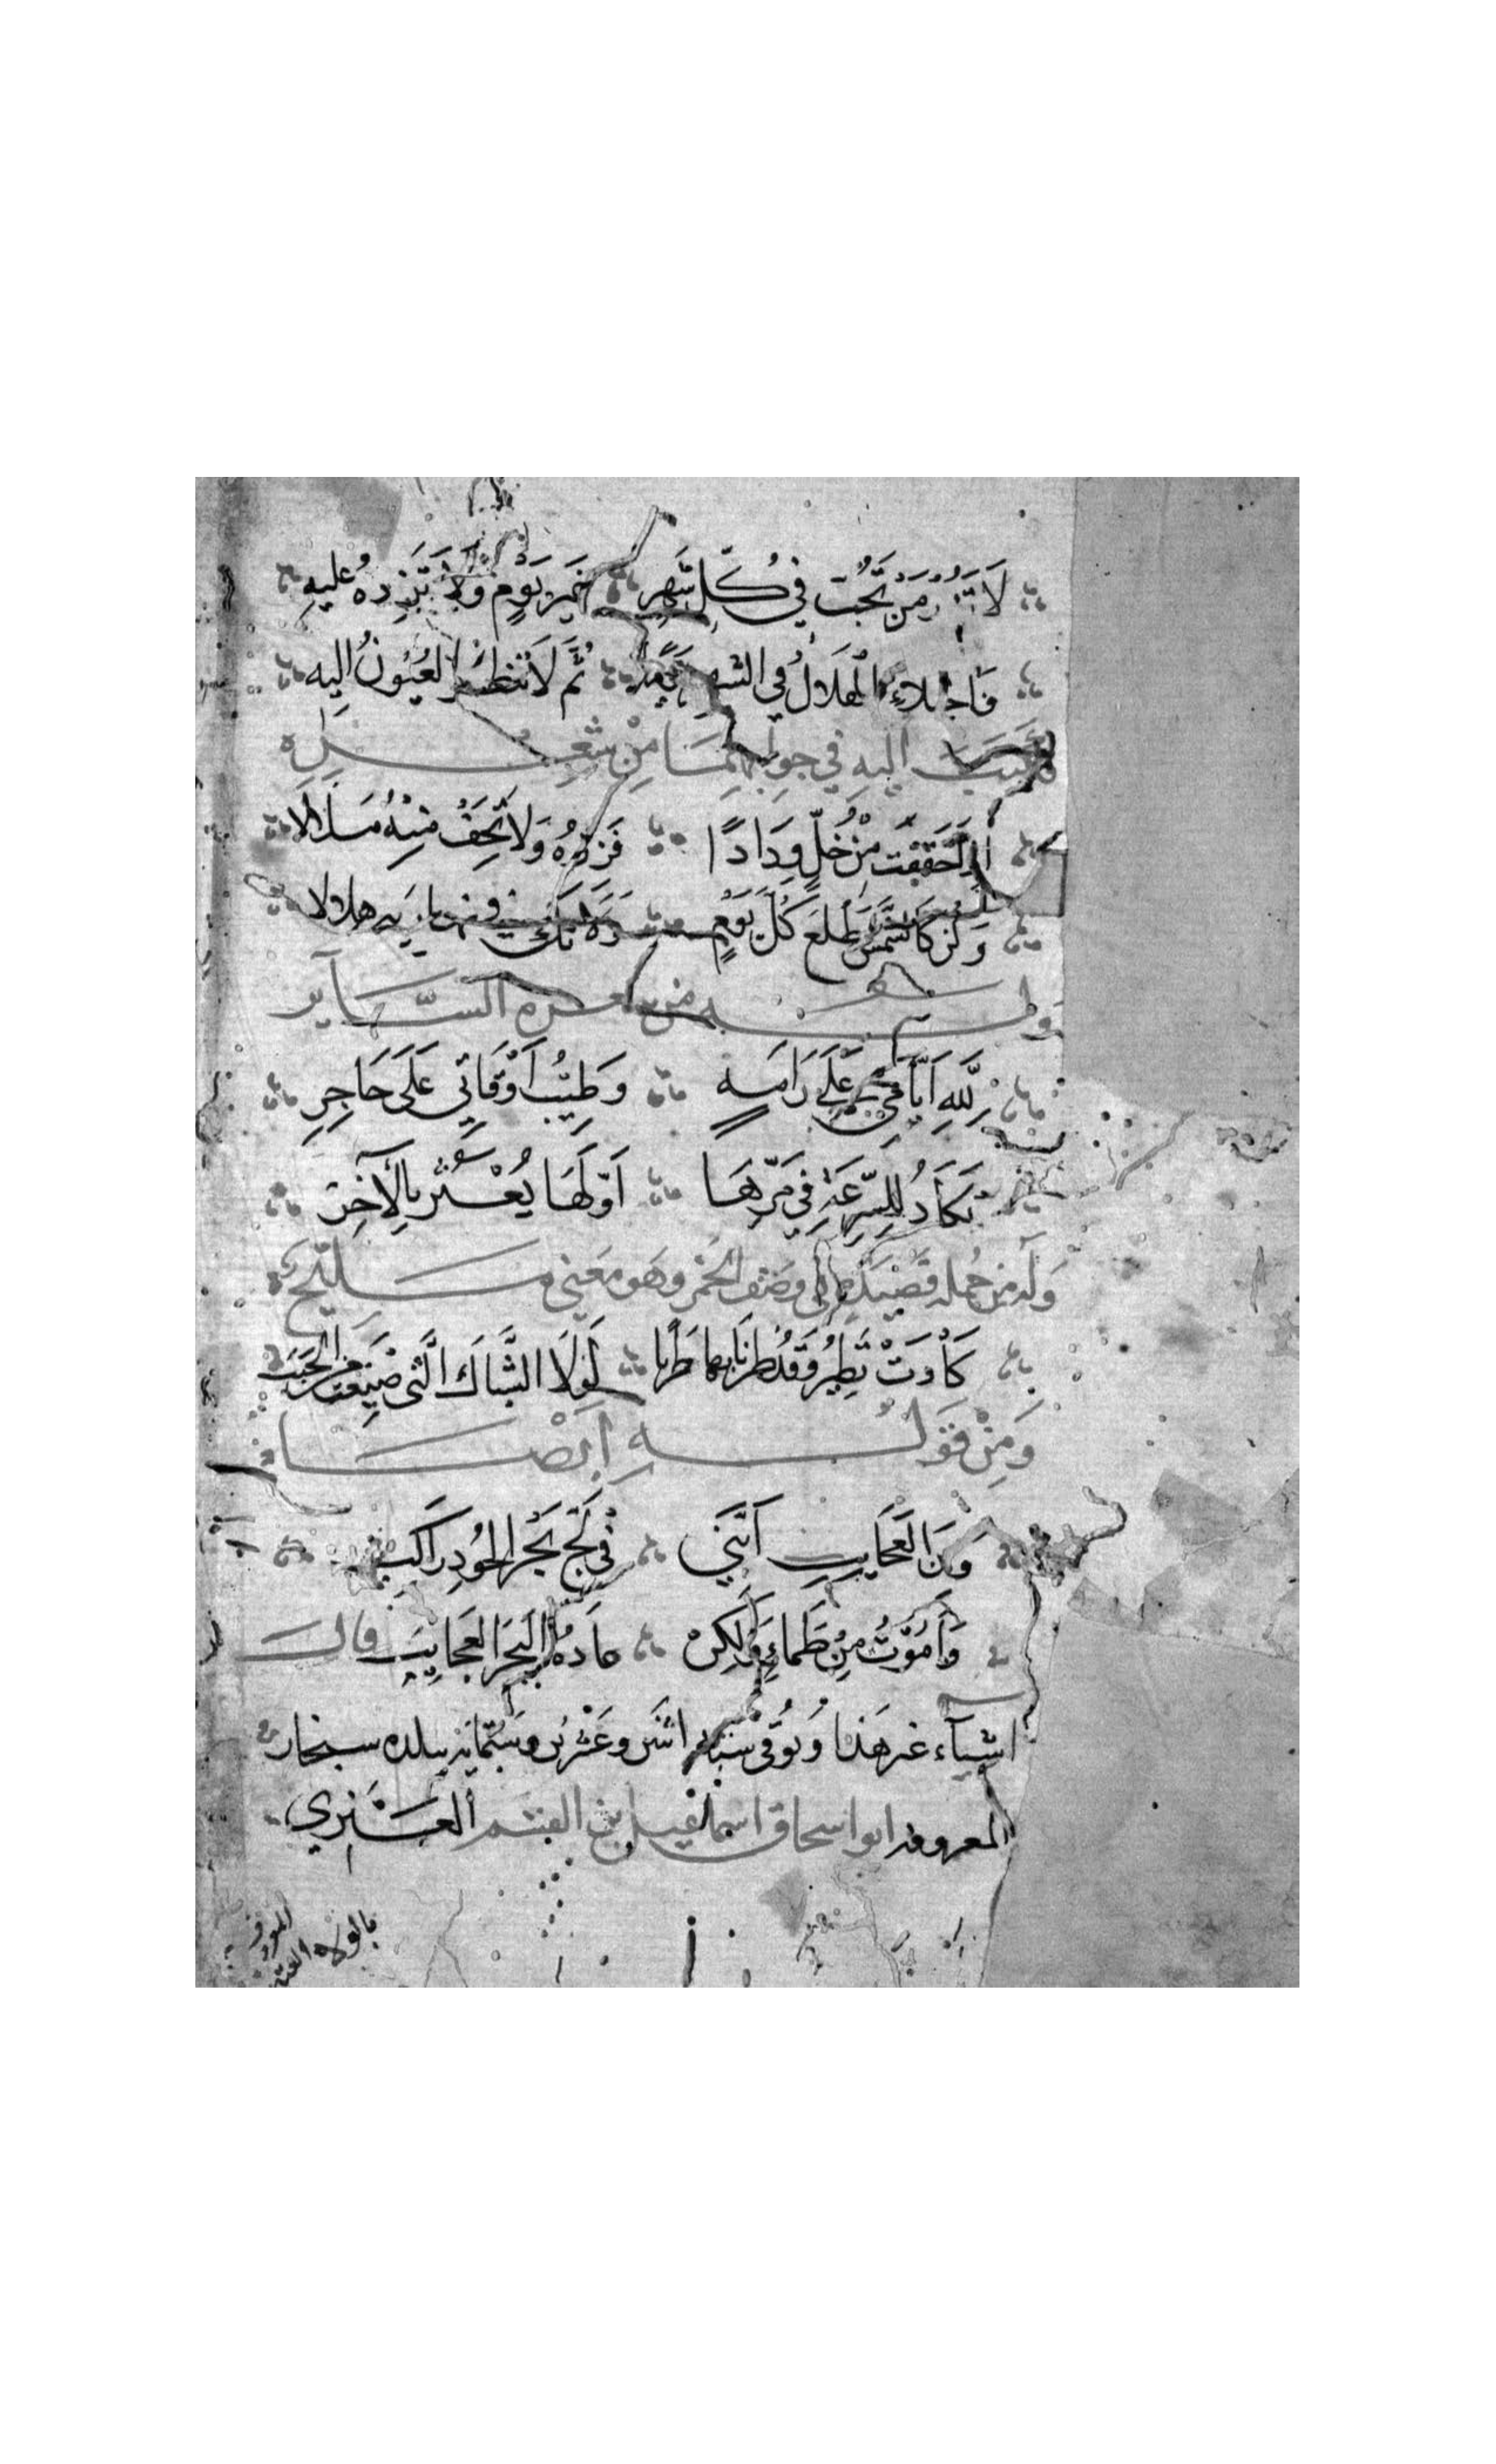 لَا تَزُرْ مَنْ تُحِبُّ فِي كُلِّ شَهْرٍ غَيْرَ يَوْمٍ وَلَا تَزِدْهُ عَلَيهِ
فَاجْتِلَاءُ الْهِلَالِ فِي الشهر يَوْمٌ ثُمَّ لَا تَنْظُرُ العُيُونُ اليه
فكتبت اليهِ فِي جوابهمَا مِنْ شِعْرٍ
اذا حَقَّقْتَ مِنْ خِلٍّ وِدَادًا فَزُرْهُ وَلَا تَخَفْ مِنْهُ مَلَالا
وَكُنْ كَالشَّمْسِ تَطْلُعُ كُلَّ يَوْمٍ وَلَا تَكُ في زيارته هلالا
ولـه من شعره السَّـاير
لِلَّهِ اَيَّامِي عَلَى رَامَةٍ وَطِيْبُ اَوْقَاتِي عَلَى حَاجِرِ
تَكَادُ لِلسُّرْعَةِ فِي مَرِّهَا اَوَّلُهَا يُعْثَرُ بِالْآخِرِ
وَلَه من جُمله قصيدة في وصف الخمر وهو مَعنى مليح
كَادَتْ تَطِيرُ وَقَدْ طِرْنَا بِهَا طَرَبًا لَوْلَا الشِّبَاكَ الَّتي صِيغَتْ مِنَ الحَبَبِ
وَمِنْ قَوْلِهِ ايضا
وَمِنَ الْعَجَايِبِ اَنَّنِي فِي لُجِّ بَحْرِ الجُودِ رَاكِبْ
وَاَمُوْتُ مِنْ ظَمَاءٍ وَلَكِنْ عَادَةُ الْبَحْرِ العَجَايِبْ وله
اشيآء غير هَذا وَتُوفي سنة اثنين وعشرين وستمائة ببلده سنجار
المعروف ابو اسحاق اسماعيل بن القسم العَنَزي
بالولاء المعروف